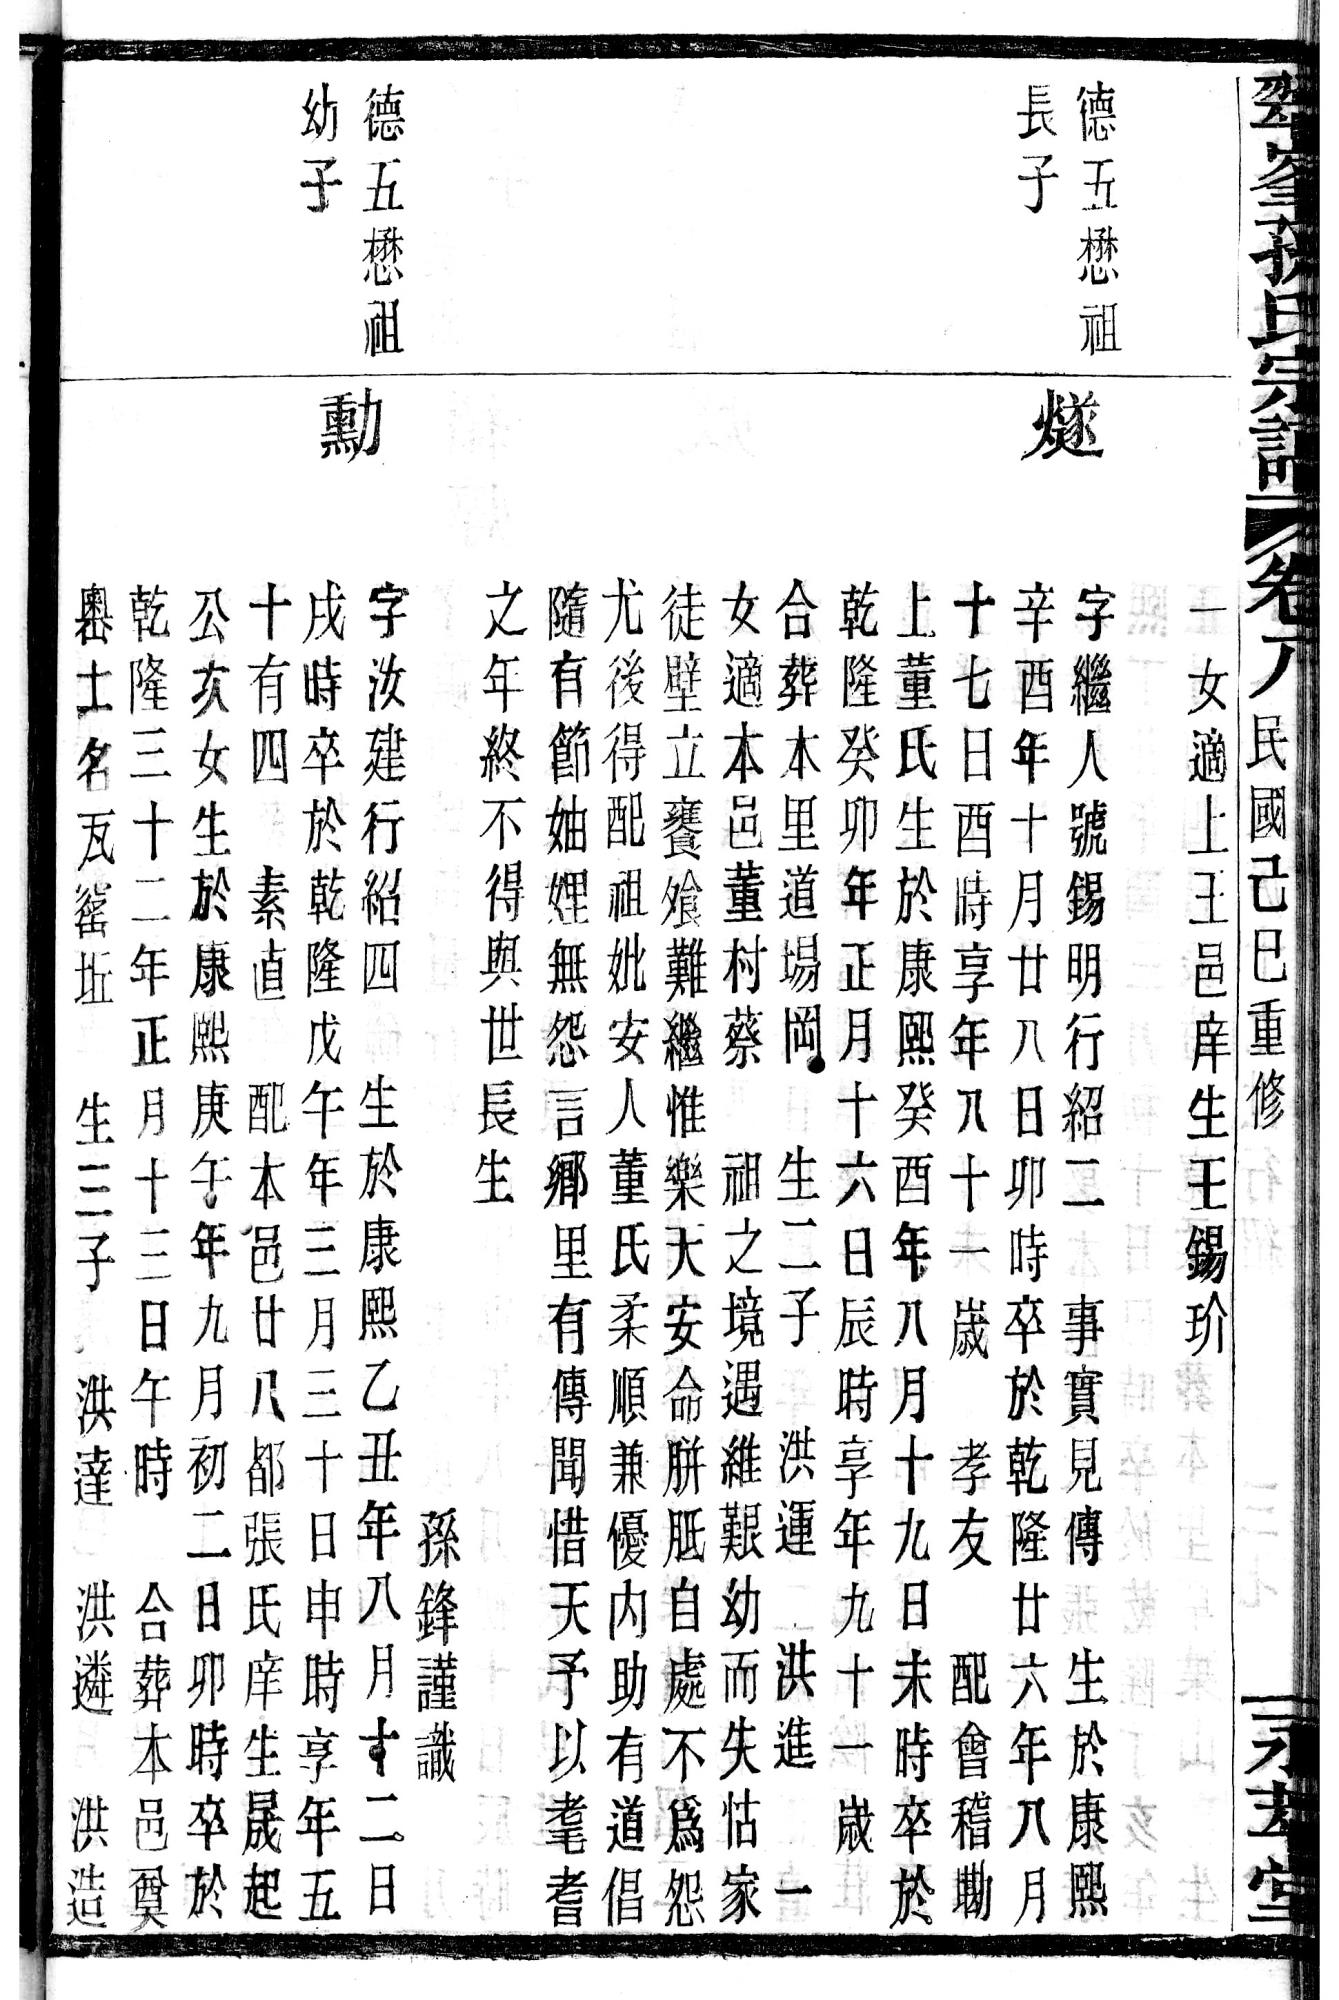 翠峯孫氏宗譜 卷八 民國己巳重修 永孝堂
一女適上王邑庠生王錫玠
德五懋祖
長子
燧
字繼人號錫明行紹二 事實見傳 生於康熙
辛酉年十月廿八日卯時卒於乾隆廿六年八月
十七日酉時享年八十一歲 孝友 配會稽勦
上董氏生於康熙癸酉年八月十九日未時卒於
乾隆癸卯年正月十六日辰時享年九十一歲
合葬本里道塲岡 生二子 洪運 洪進 一
女適本邑董村蔡 祖之境遇維艱幼而失怙家
徒壁立饔飧難繼惟樂天安命胼胝自處不爲怨
尤後得配祖妣安人董氏柔順兼優內助有道倡
隨有節妯娌無怨言鄉里有傳聞惜天予以耄耆
之年終不得與世長生
孫鋒謹識
德五懋祖
幼子
勳
字汝建行紹四 生於康熙乙丑年八月十二日
戌時卒於乾隆戊午年三月三十日申時享年五
十有四 素直 配本邑廿八都張氏庠生晟起
公亥女生於康熙庚午年九月初二日卯時卒於
乾隆三十二年正月十三日午時 合葬本邑奠
嶴土名瓦窰坵 生三子 洪達 洪遴 洪造